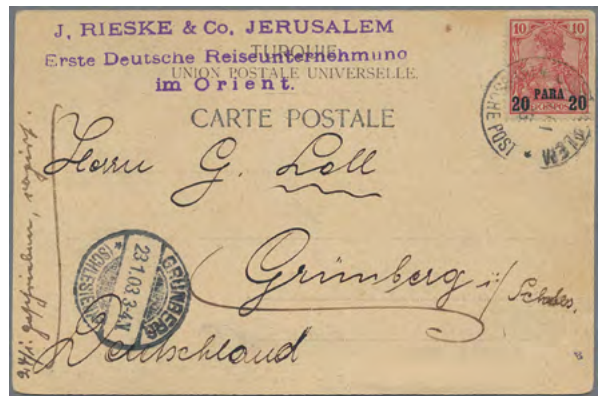 J. RIESKE & Co. JERUSALEM
Erste Deutsche Reiseunternehmung
im Orient.
TURQUIE
UNION POSTALE UNIVERSELLE.
CARTE POSTALE
10 10
20 PARA 20
DEUTSCHE POST
Herrn G. Loll
Grünberg i/Schles.
Deutschland
GRÜNBERG
23.1.03.3-4N.
* (SCHLESIEN)